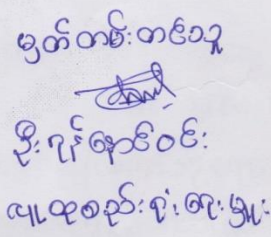 မှတ်တမ်းတင်သူ
ဦးဂျွန်နောင်ဝင်း
လူထုစည်းရုံးရေးမှူး